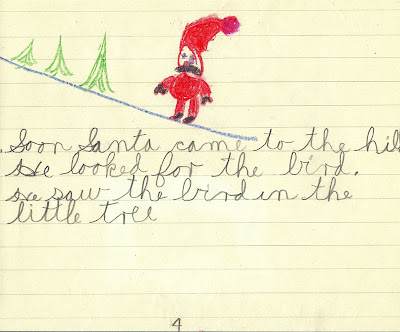 . Soon Santa came to the hill
He looked for the bird.
He saw the bird in the
little tree
4